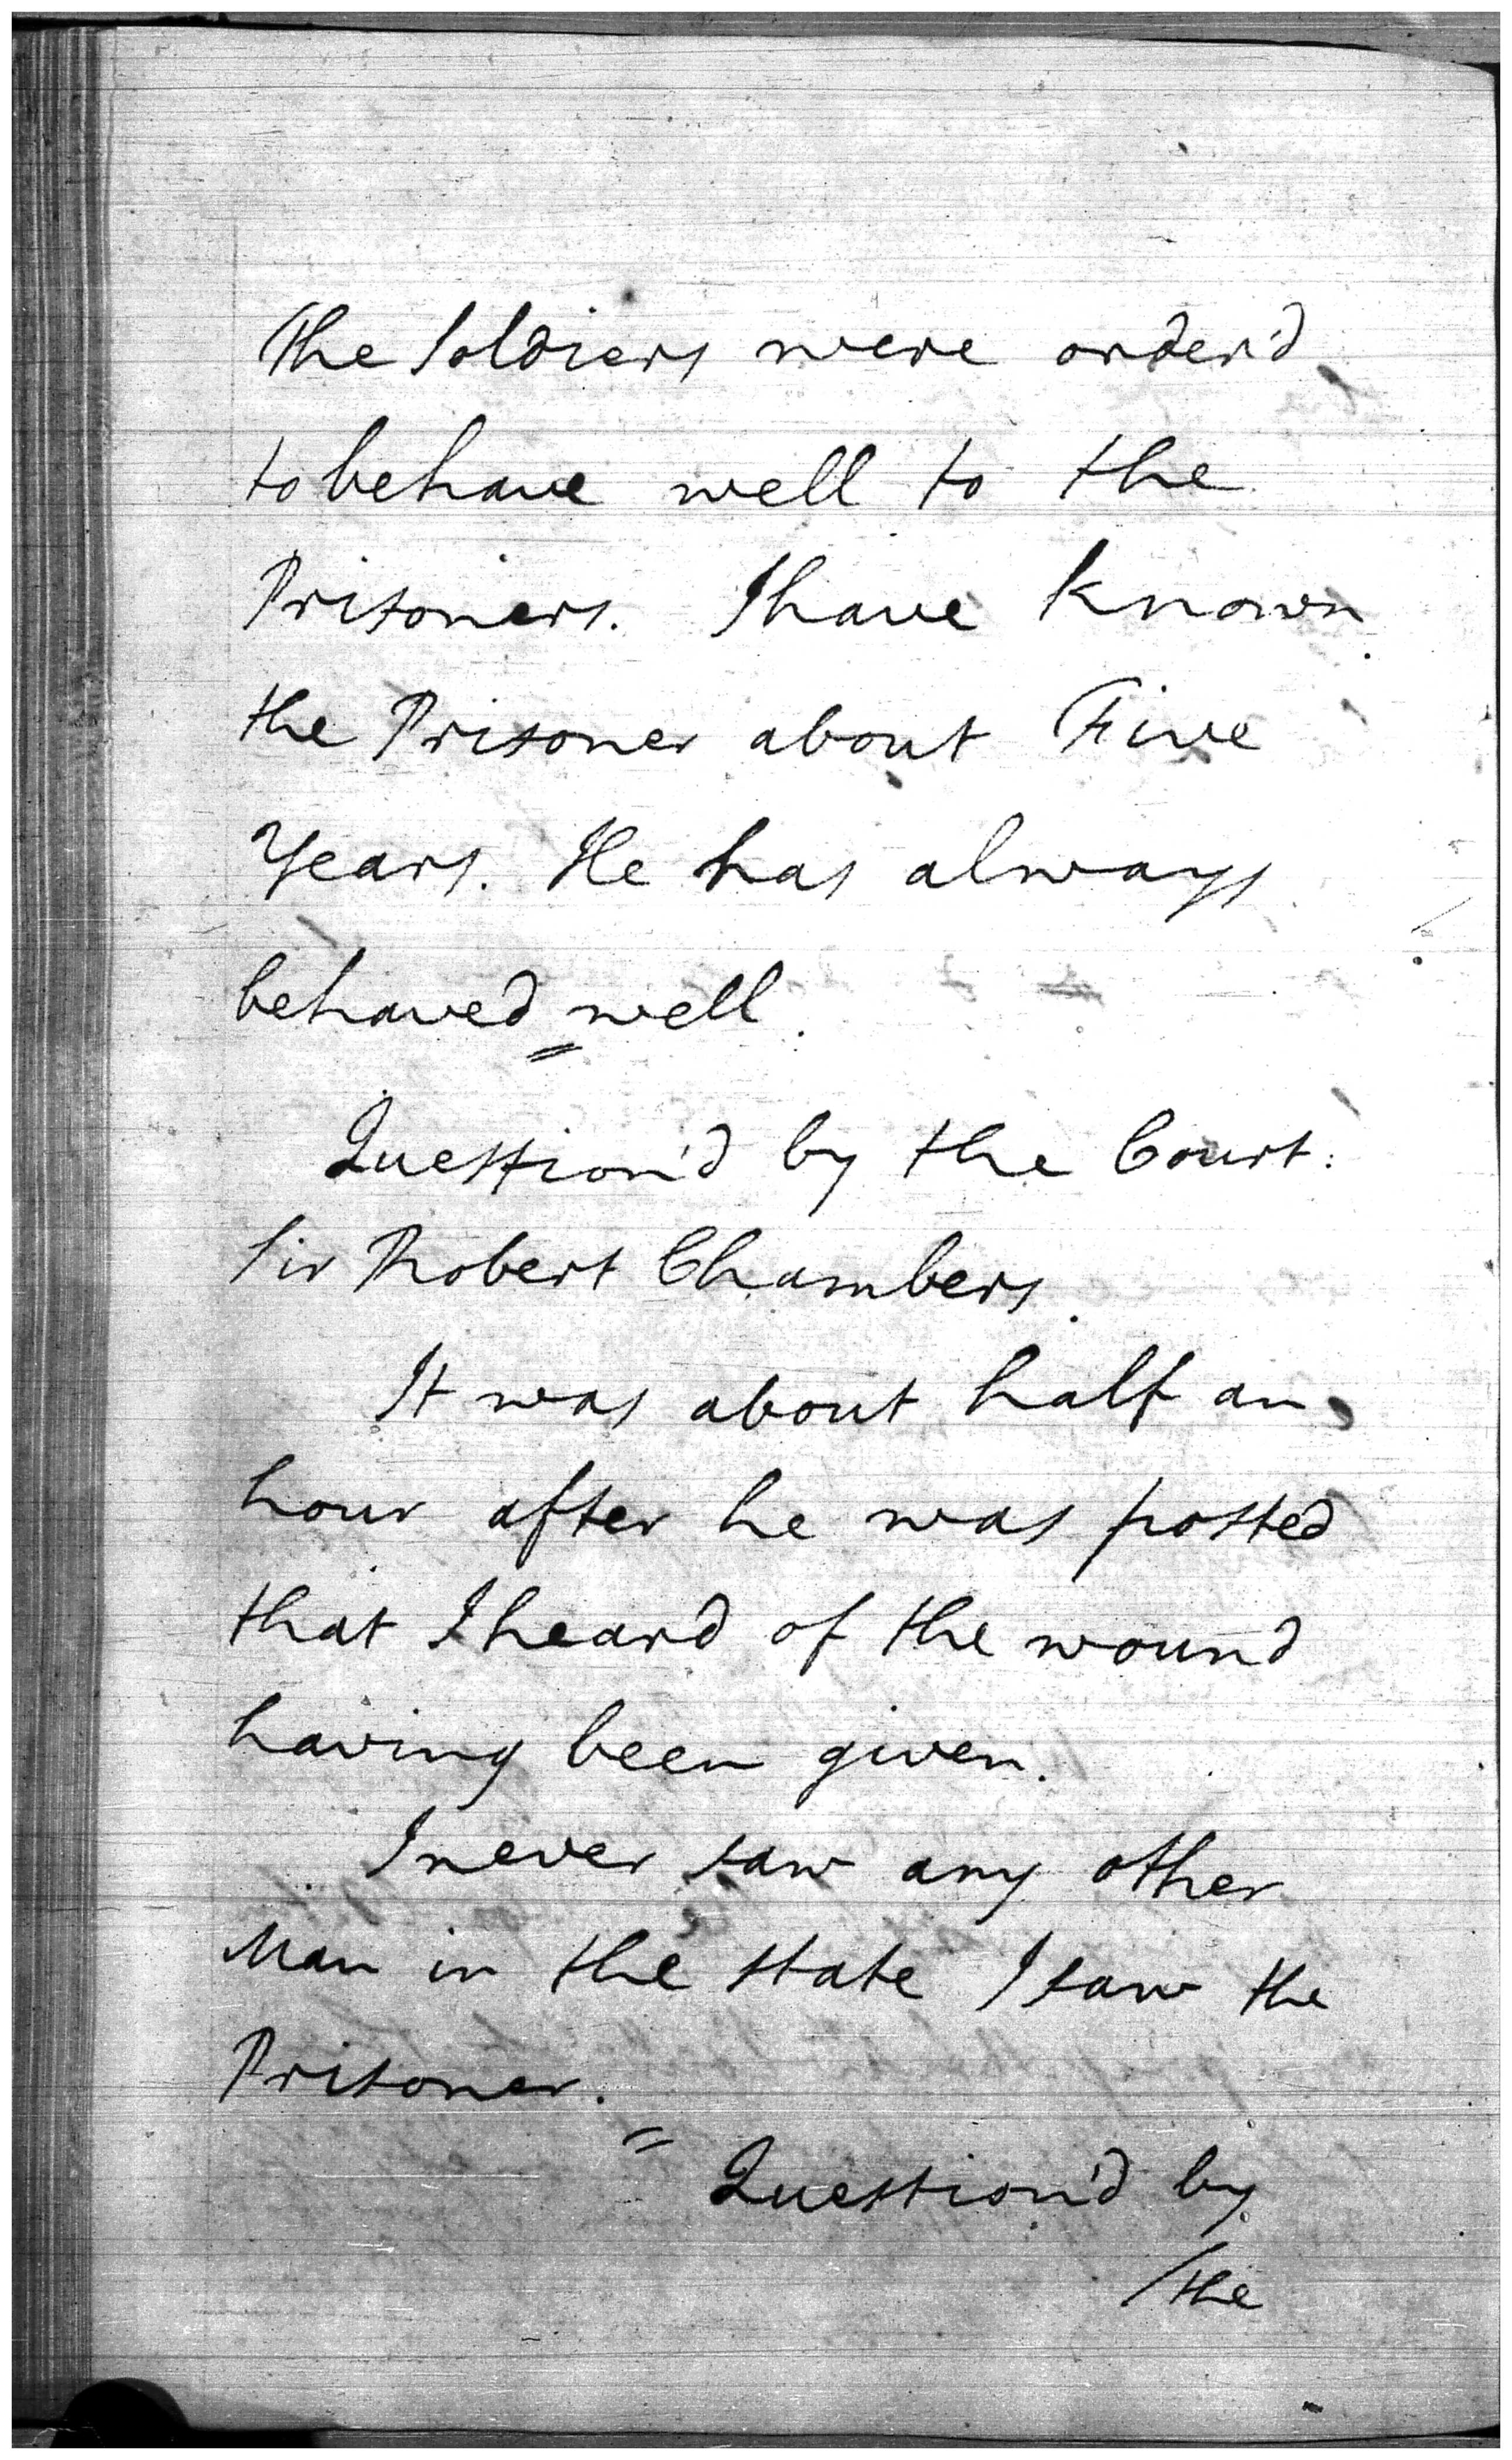 The Soldiers were order'd
to behave well to the
Prisoners. I have known
the Prisoner about Five
Years. He has always
behaved well.
Question'd by the Court:
Sir Robert Chambers.
It was about half an
hour after he was posted
that I heard of the wound
having been given.
I never saw any other
Man in the state I saw the
Prisoner.
Question'd by
/the